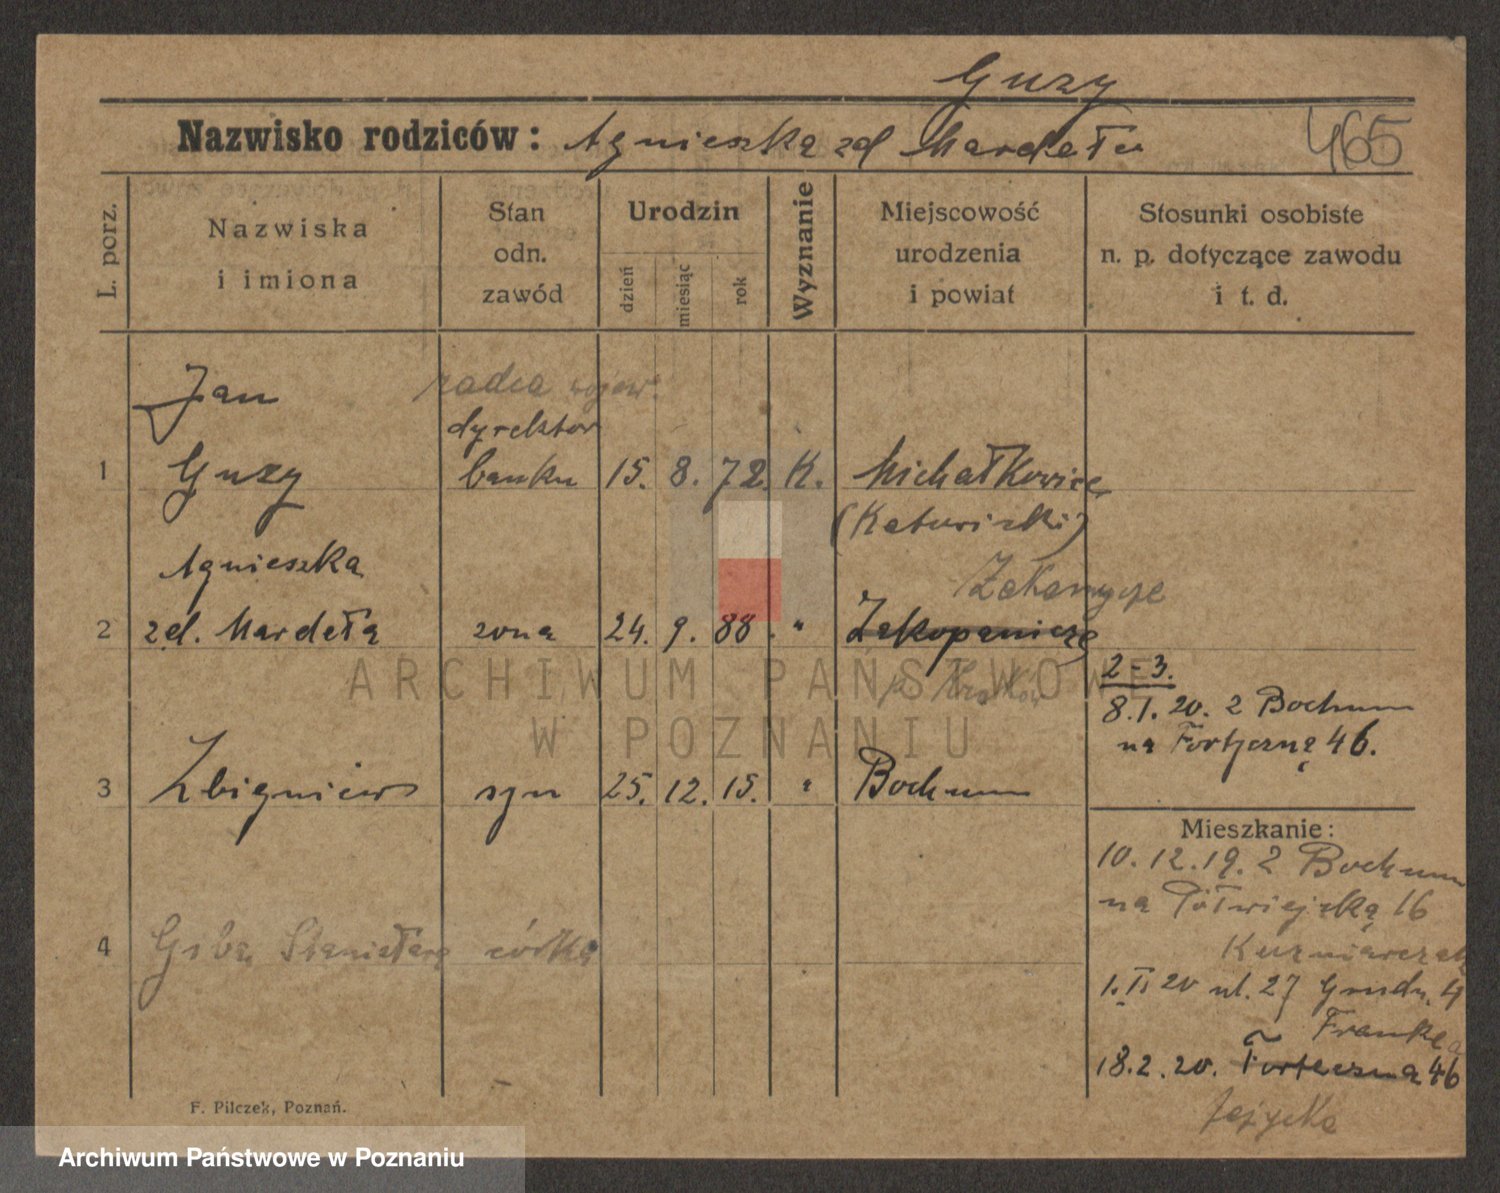 Guzy
Nazwisko rodziców: Agnieszka zd Mardeła
465
L. porz.
Nazwiska
i imiona
Stan
odn.
zawód
Urodzin
dzień
miesiąc
rok
Wyznanie
Miejscowość
urodzenia
i powiat
Stosunki osobiste
n. p. dotyczące zawodu
i t. d.
Jan
radca wojew.
dyrektor
1 Guzy banku 15. 8. 72. K. Michałkowice
(Katowicki)
Agnieszka
2 zd. Mardeła żona 24. 9. 88. " Zakopanicze
k. Kraków
2-3.
8.1.20. z Bochum
na Forteczną 46.
3 Zbigniew syn 25. 12. 15. " Bochum
4 córka
Mieszkanie:
10.12.19. z Bochum
na Półwiejską 16
1.II 20 ul. 27 Grudn. 9
18.2.20. Forteczna 46
F. Pilczek, Poznań.
ARCHIWUM PAŃSTWOWE
W POZNANIU
Archiwum Państwowe w Poznaniu